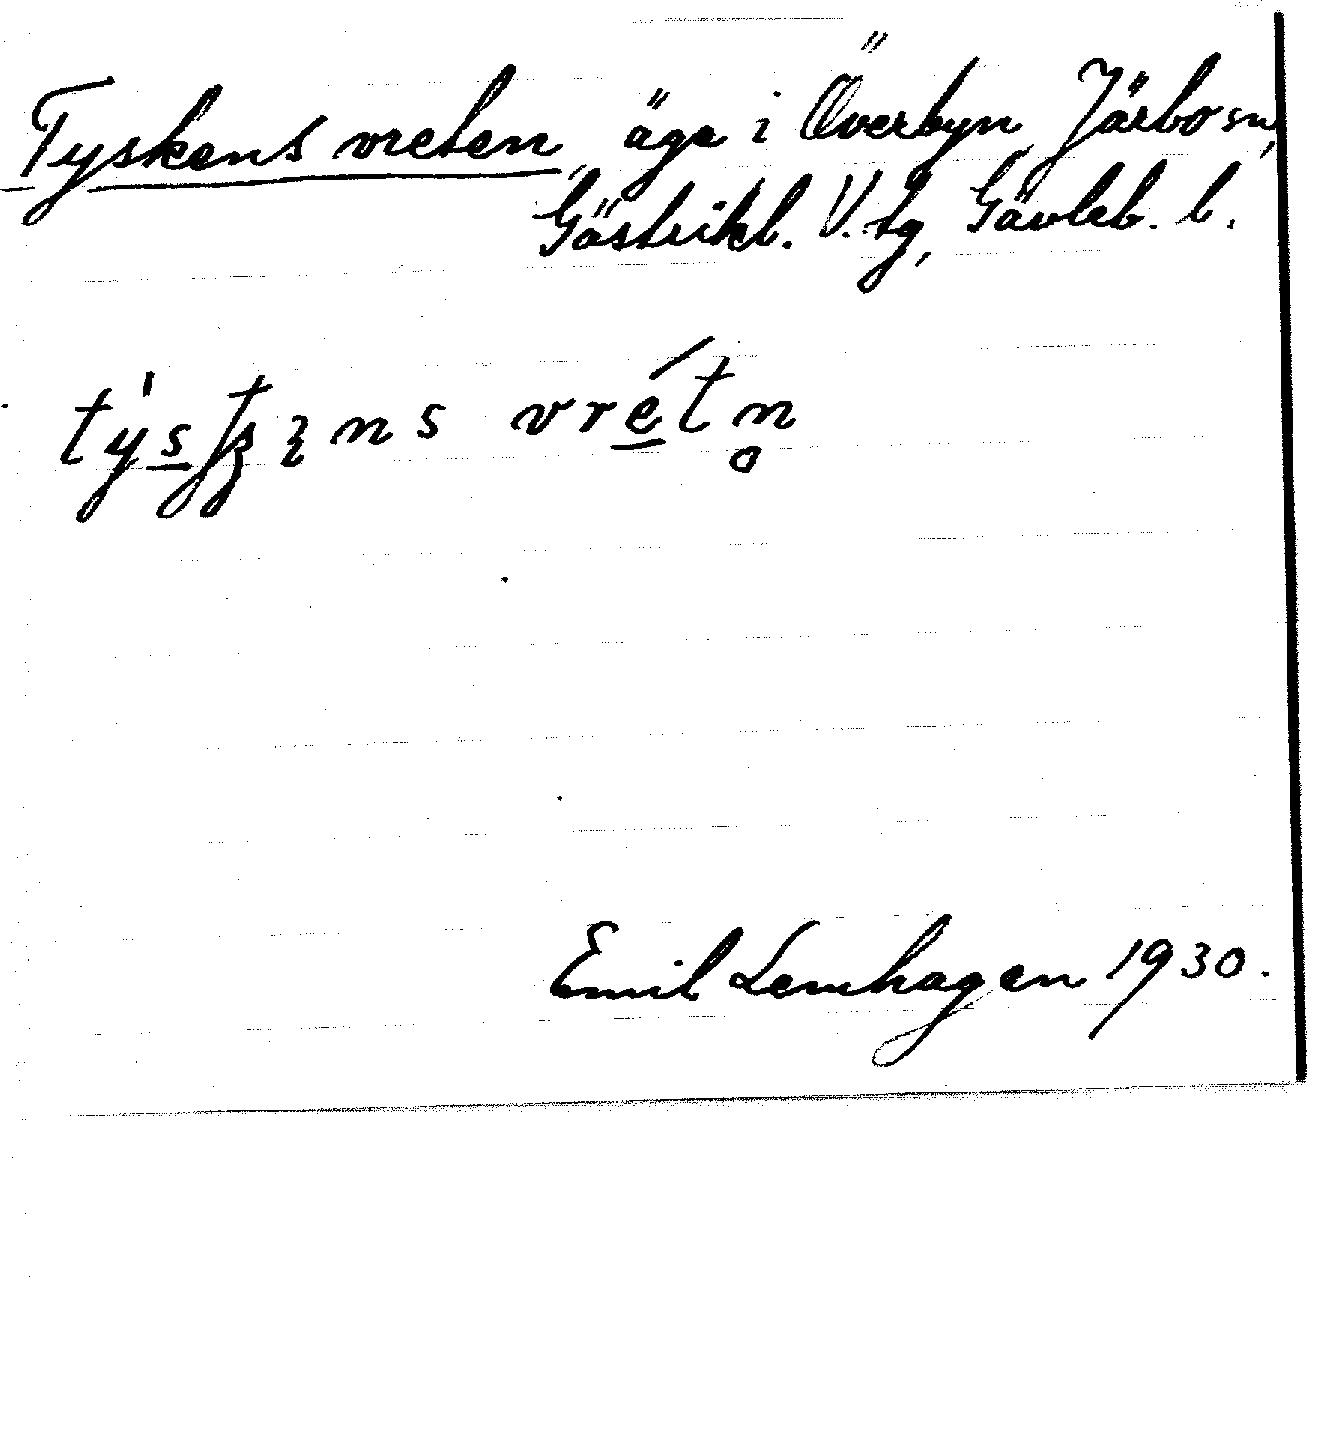 Tyskens vreten, äga i Överbyn, Järbo sn,
Gästrikl. V. tg, Gävleb. l.
vrétn̥
Emil Lemhagen 1930.